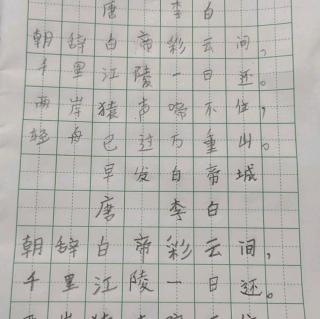 唐 李白
朝辞白帝彩云间。
千里江陵一日还。
两岸猿声啼不住,
轻舟已过万重山。
早发白帝城
唐 李白
朝辞白帝彩云间,
千里江陵一日还。
两岸猿声啼不住